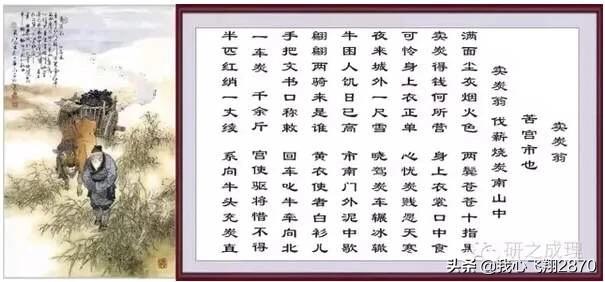 卖炭翁
苦宫市也
卖炭翁 伐薪烧炭南山中
满面尘灰烟火色 两鬓苍苍十指黑
卖炭得钱何所营 身上衣裳口中食
可怜身上衣正单 心忧炭贱忍天寒
夜来城外一尺雪 晓驾炭车辗冰辙
牛困人饥日已高 市南门外泥中歇
翩翩两骑来是谁 黄衣使者白衫儿
手把文书口称敕 回车叱牛牵向北
一车炭 千余斤 宫使驱将惜不得
半匹红绡一丈绫 系向牛头充炭直
研之成理
头条 @我心飞翔2870